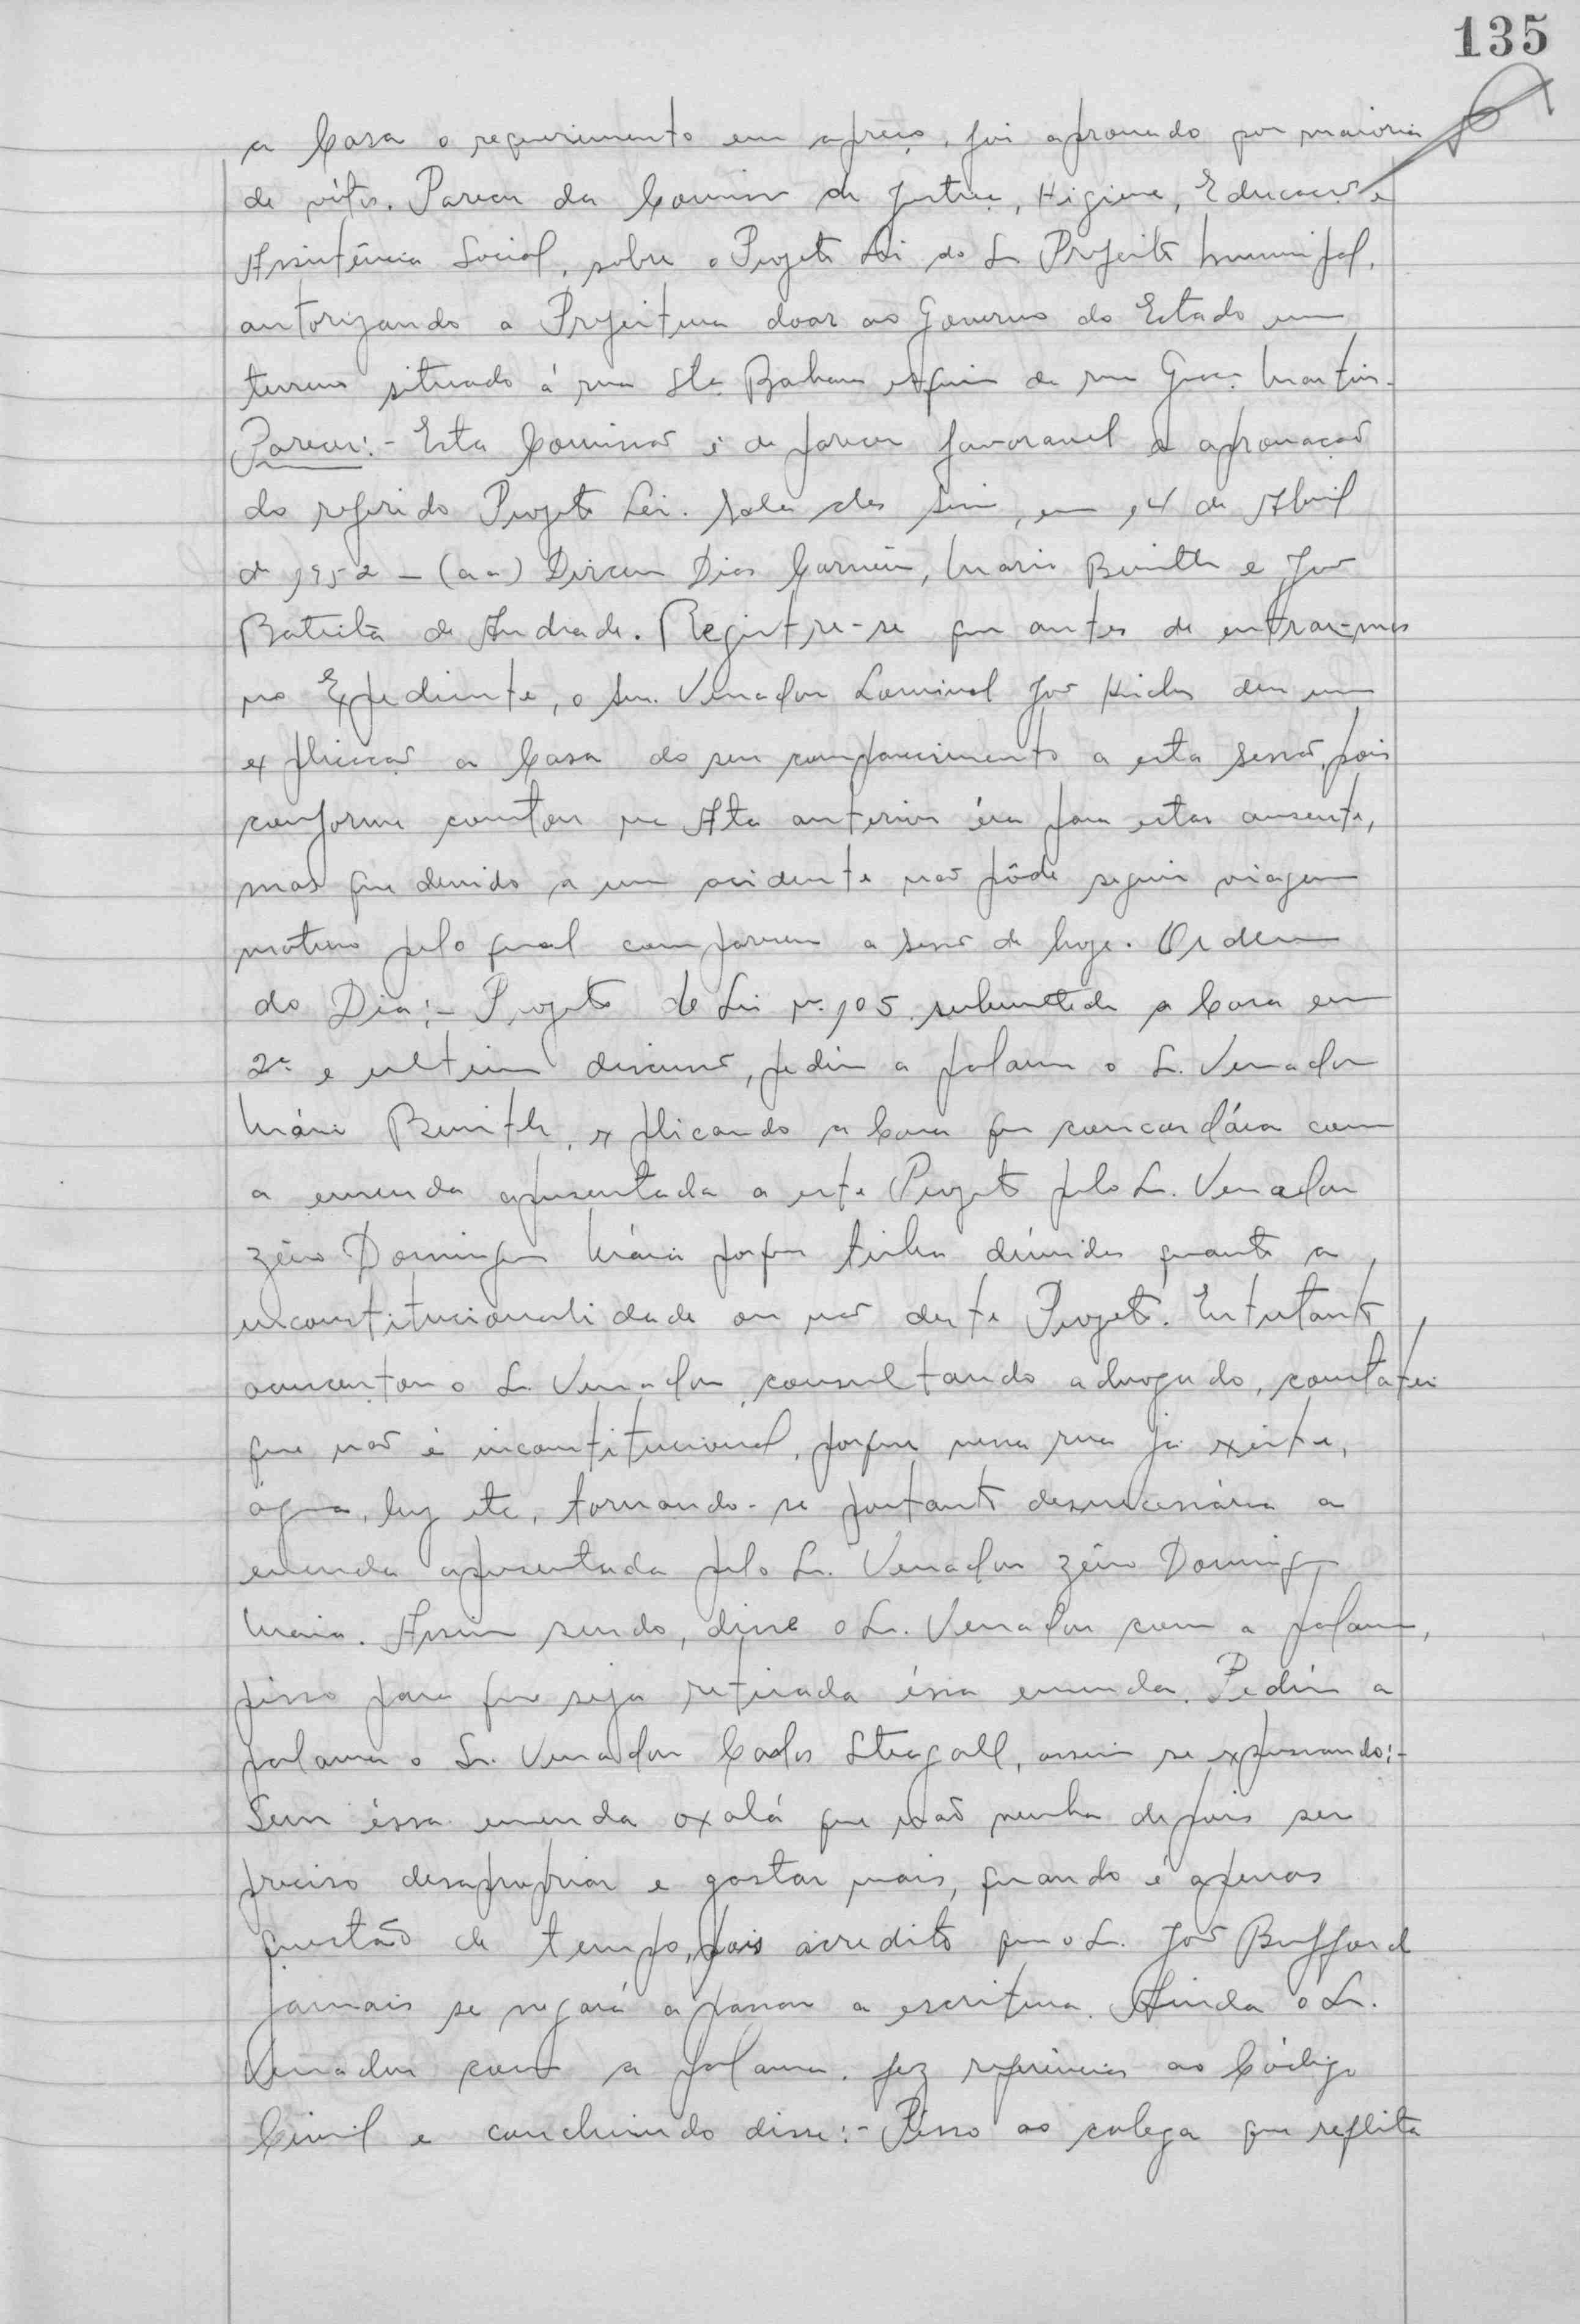 135
a Casa o requerimento em apreço, foi aprovado por maioria
de vótos. Parecer da Comissão de Justiça, Higiene, Educação e
Assistência Social, sobre o Projeto Lei do Sr. Prefeito Municipal,
autorizando a Prefeitura doar ao Governo do Estado um
terreno situado á rua Sta. Barbara esquina da rua Martins.
Parecer:- Esta Comissão é de parecer favoravel a aprovação
do referido Projeto Lei. Sala das Sessões, em 14 de Abril
de 1952 - (aa) Dirceu Dias Carneiro, Mario Benith e José
Batista de Andrade. Registre-se que antes de entrar-mos
no Expediente, o Snr. Vereador José deu uma
explicação a Casa do seu comparecimento a esta sessão, pois
conforme constou na Ata anterior éra para estar ausente,
mas que devido a um acidente não pôde seguir viagem
motivo pelo qual compareceu a sessão de hoje. Ordem
do Dia:- Projeto de Lei nº 105. submetida a Casa em
2ª e ultima discussão, pediu a palavra o Sr. Vereador
Mário Benith, explicando a Casa que concordára com
a emenda apresentada a este Projeto pelo Sr. Vereador
Zéno Domingues Máia porque tinha dúvidas quanto a
inconstitucionalidade ou não deste Projeto. Entretanto
acrescentou o Sr. Vereador, consultando advogado, constatei
que não é inconstitucional, porque nessa rua já existe,
água, luz etc, tornando-se portanto desnecessária a
emenda apresentada pelo Sr. Vereador Zéno Domingues
Maia. Assim sendo, disse o Sr. Vereador com a palavra,
pésso para que seja retirada éssa emenda. Pediu a
palavra o Sr. Vereador Carlos Steagall, assim se expressando:-
Sem éssa emenda oxalá que não venha depois ser
preciso desapropriar e gastar mais, quando é apenas
questão de tempo, pois acredito que o Sr. José Bufford
jamais se negará a passar a escritura. Ainda o Sr.
Vereador com a palavra, fez referências ao Código
Civil e concluindo disse:- Pésso ao colega que reflita